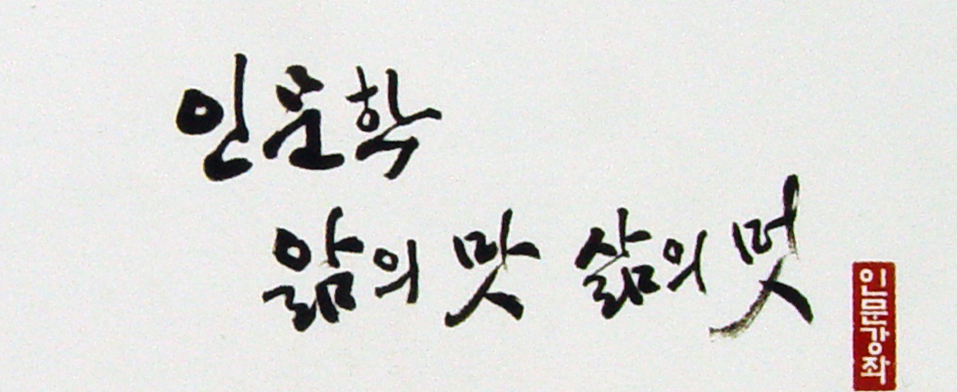 인문학
앎의 맛 삶의 멋
인문강좌